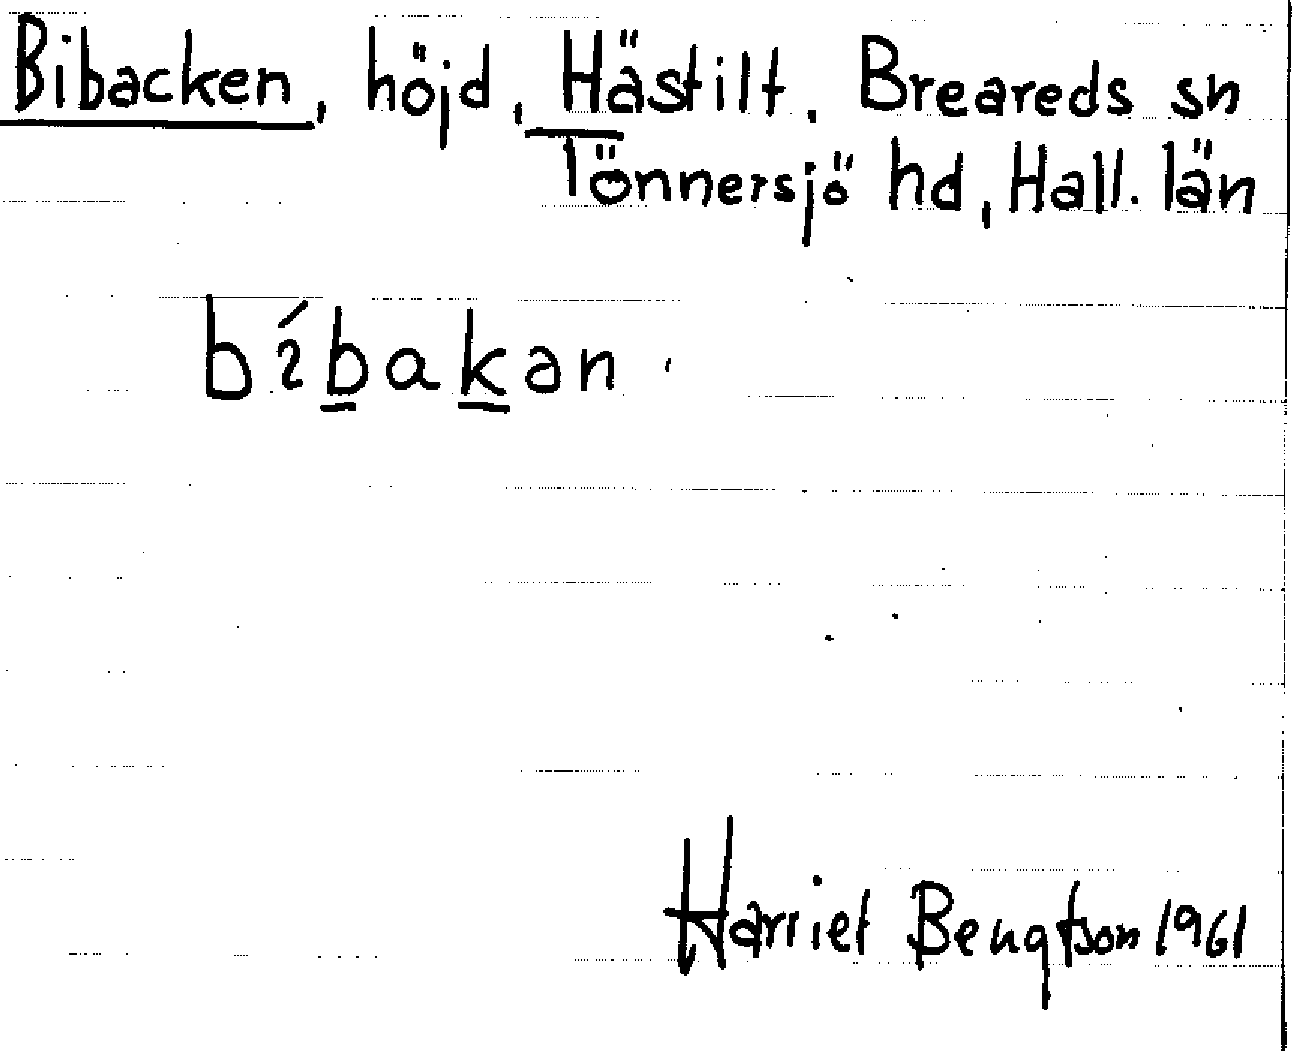 Bibacken, höjd, Hästilt. Breareds sn
Tönnersjö hd, Hall. län
bíbakan
Harriet Bengtson 1961